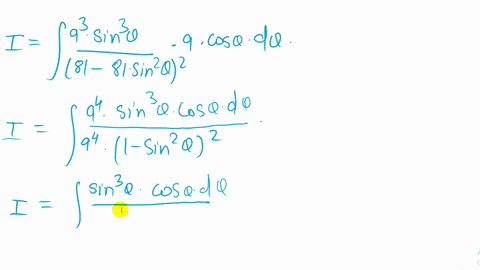 I = ∫ 9³·sin³θ / (81 - 81·sin²θ)² · 9·cosθ·dθ.
I = ∫ 9⁴·sin³θ·cosθ·dθ / 9⁴·(1-sin²θ)² .
I = ∫ sin³θ·cosθ·dθ /